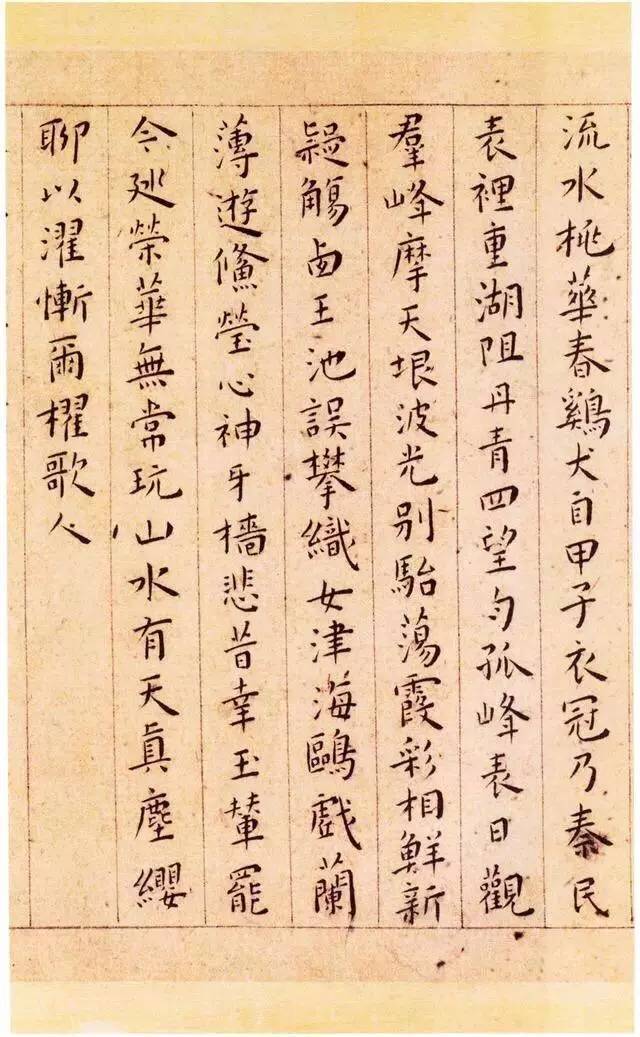 流水桃華春鷄犬自甲子衣冠乃秦民
表裡重湖阻丹青四望勻孤峰表日觀
羣峰摩天垠波光別駘蕩霞彩相鮮新
疑觴鹵王池誤攀織女津海鷗戲蘭
薄遊鯈瑩心神牙檣悲昔幸玉輦罷
令巡榮華無常玩山水有天眞塵纓
聊以濯慚爾櫂歌人